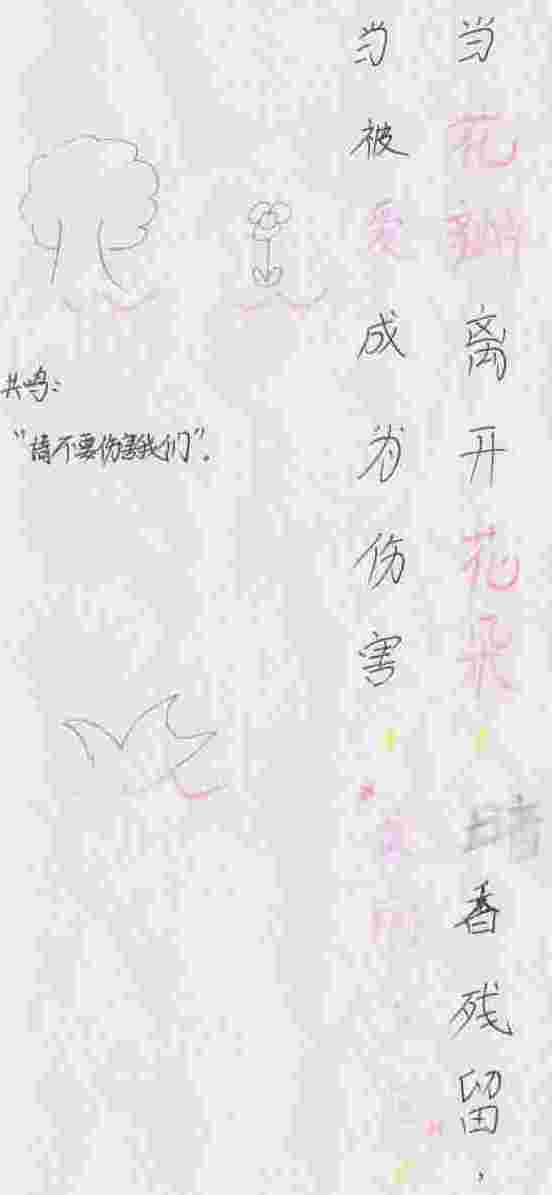 当花瓣离开花朵
暗香残留，
当被爱成为伤害
共鸣：
“请不要伤害我们”。